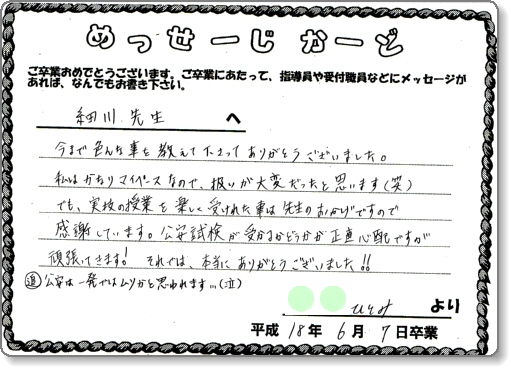 めっせーじかーど
ご卒業おめでとうございます。ご卒業にあたって、指導員や受付職員などにメッセージが
あれば、なんでもお書き下さい。
細川 先生 へ
今まで色んな事を教えて下さってありがとうございました。
私はかなりマイペースなので、扱いが大変だったと思います(笑)
でも、実技の授業を楽しく受けれた事は先生のおかげですので
感謝しています。公安試検が受かるかどうかが正直心配ですが
頑張ってきます! それでは、本当にありがとうございました!!
追 公安は一発ではムリかと思われます…(泣)
ひとみ より
平成 18年 6月 7日卒業